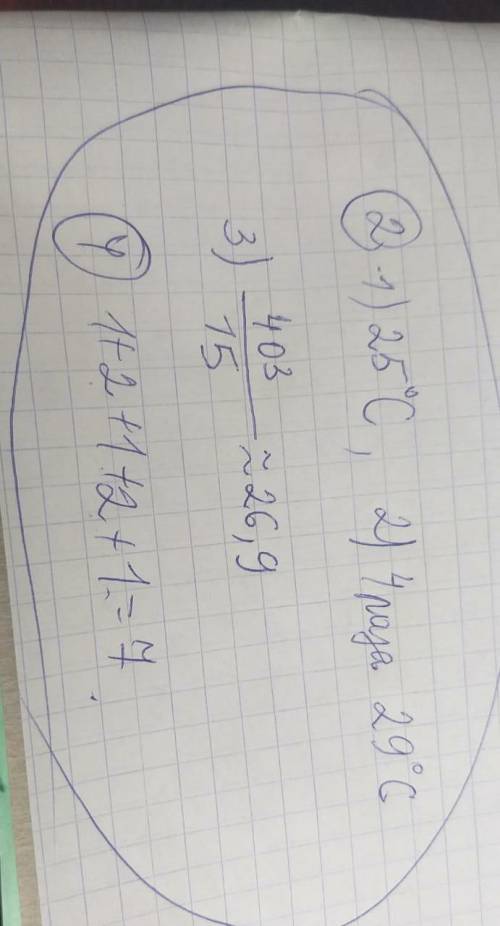 2. 1) 25°C, 2) 4 раза 29°C
3) 403/15 ≈ 26,9
4 1+2+1+2+1=7